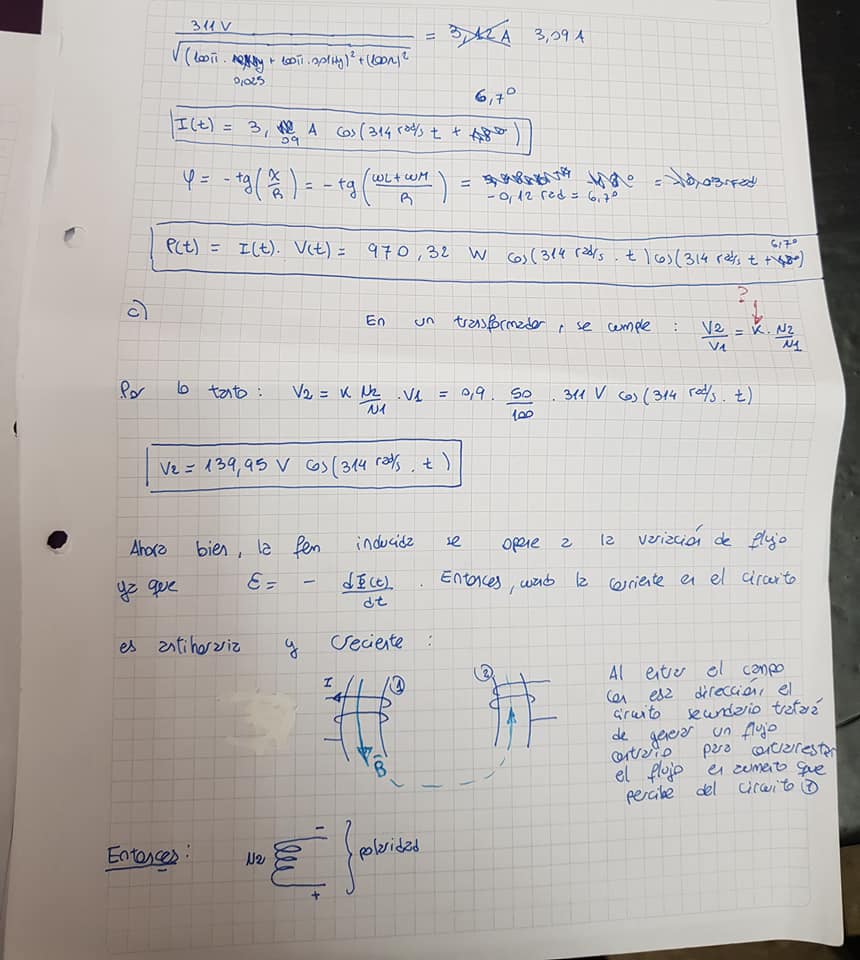 311 V
√((100π · 0,025 + 100π · 0,01Hy)² + (100Ω)²) = 3,12 A 3,09 A
6,7°
I(t) = 3,09 A cos(314 rad/s t + )
φ = -tg(X/R) = -tg((ωL+ωM)/R) = -0,12 rad = 6,7°
P(t) = I(t). V(t) = 970,32 W cos(314 rad/s . t) cos(314 rad/s t + 6,7°)
?
c) En un transformador, se cumple : V2/V1 = K . N2/N1
Por lo tanto : V2 = K N2/N1 . V1 = 0,9 . 50/100 . 311 V cos(314 rad/s . t)
V2 = 139,95 V cos(314 rad/s . t)
Ahora bien, la fem inducida se opone a la variación de flujo
ya que Ɛ = - dΦ(t)/dt . Entonces, cuando la corriente en el circuito
es antihoraria y creciente :
I 1 2
B
Al entrar el campo
con esa dirección, el
circuito secundario tratará
de generar un flujo
contrario para contrarrestar
el flujo en aumento que
percibe del circuito 1
Entonces : N2 - + } polaridad